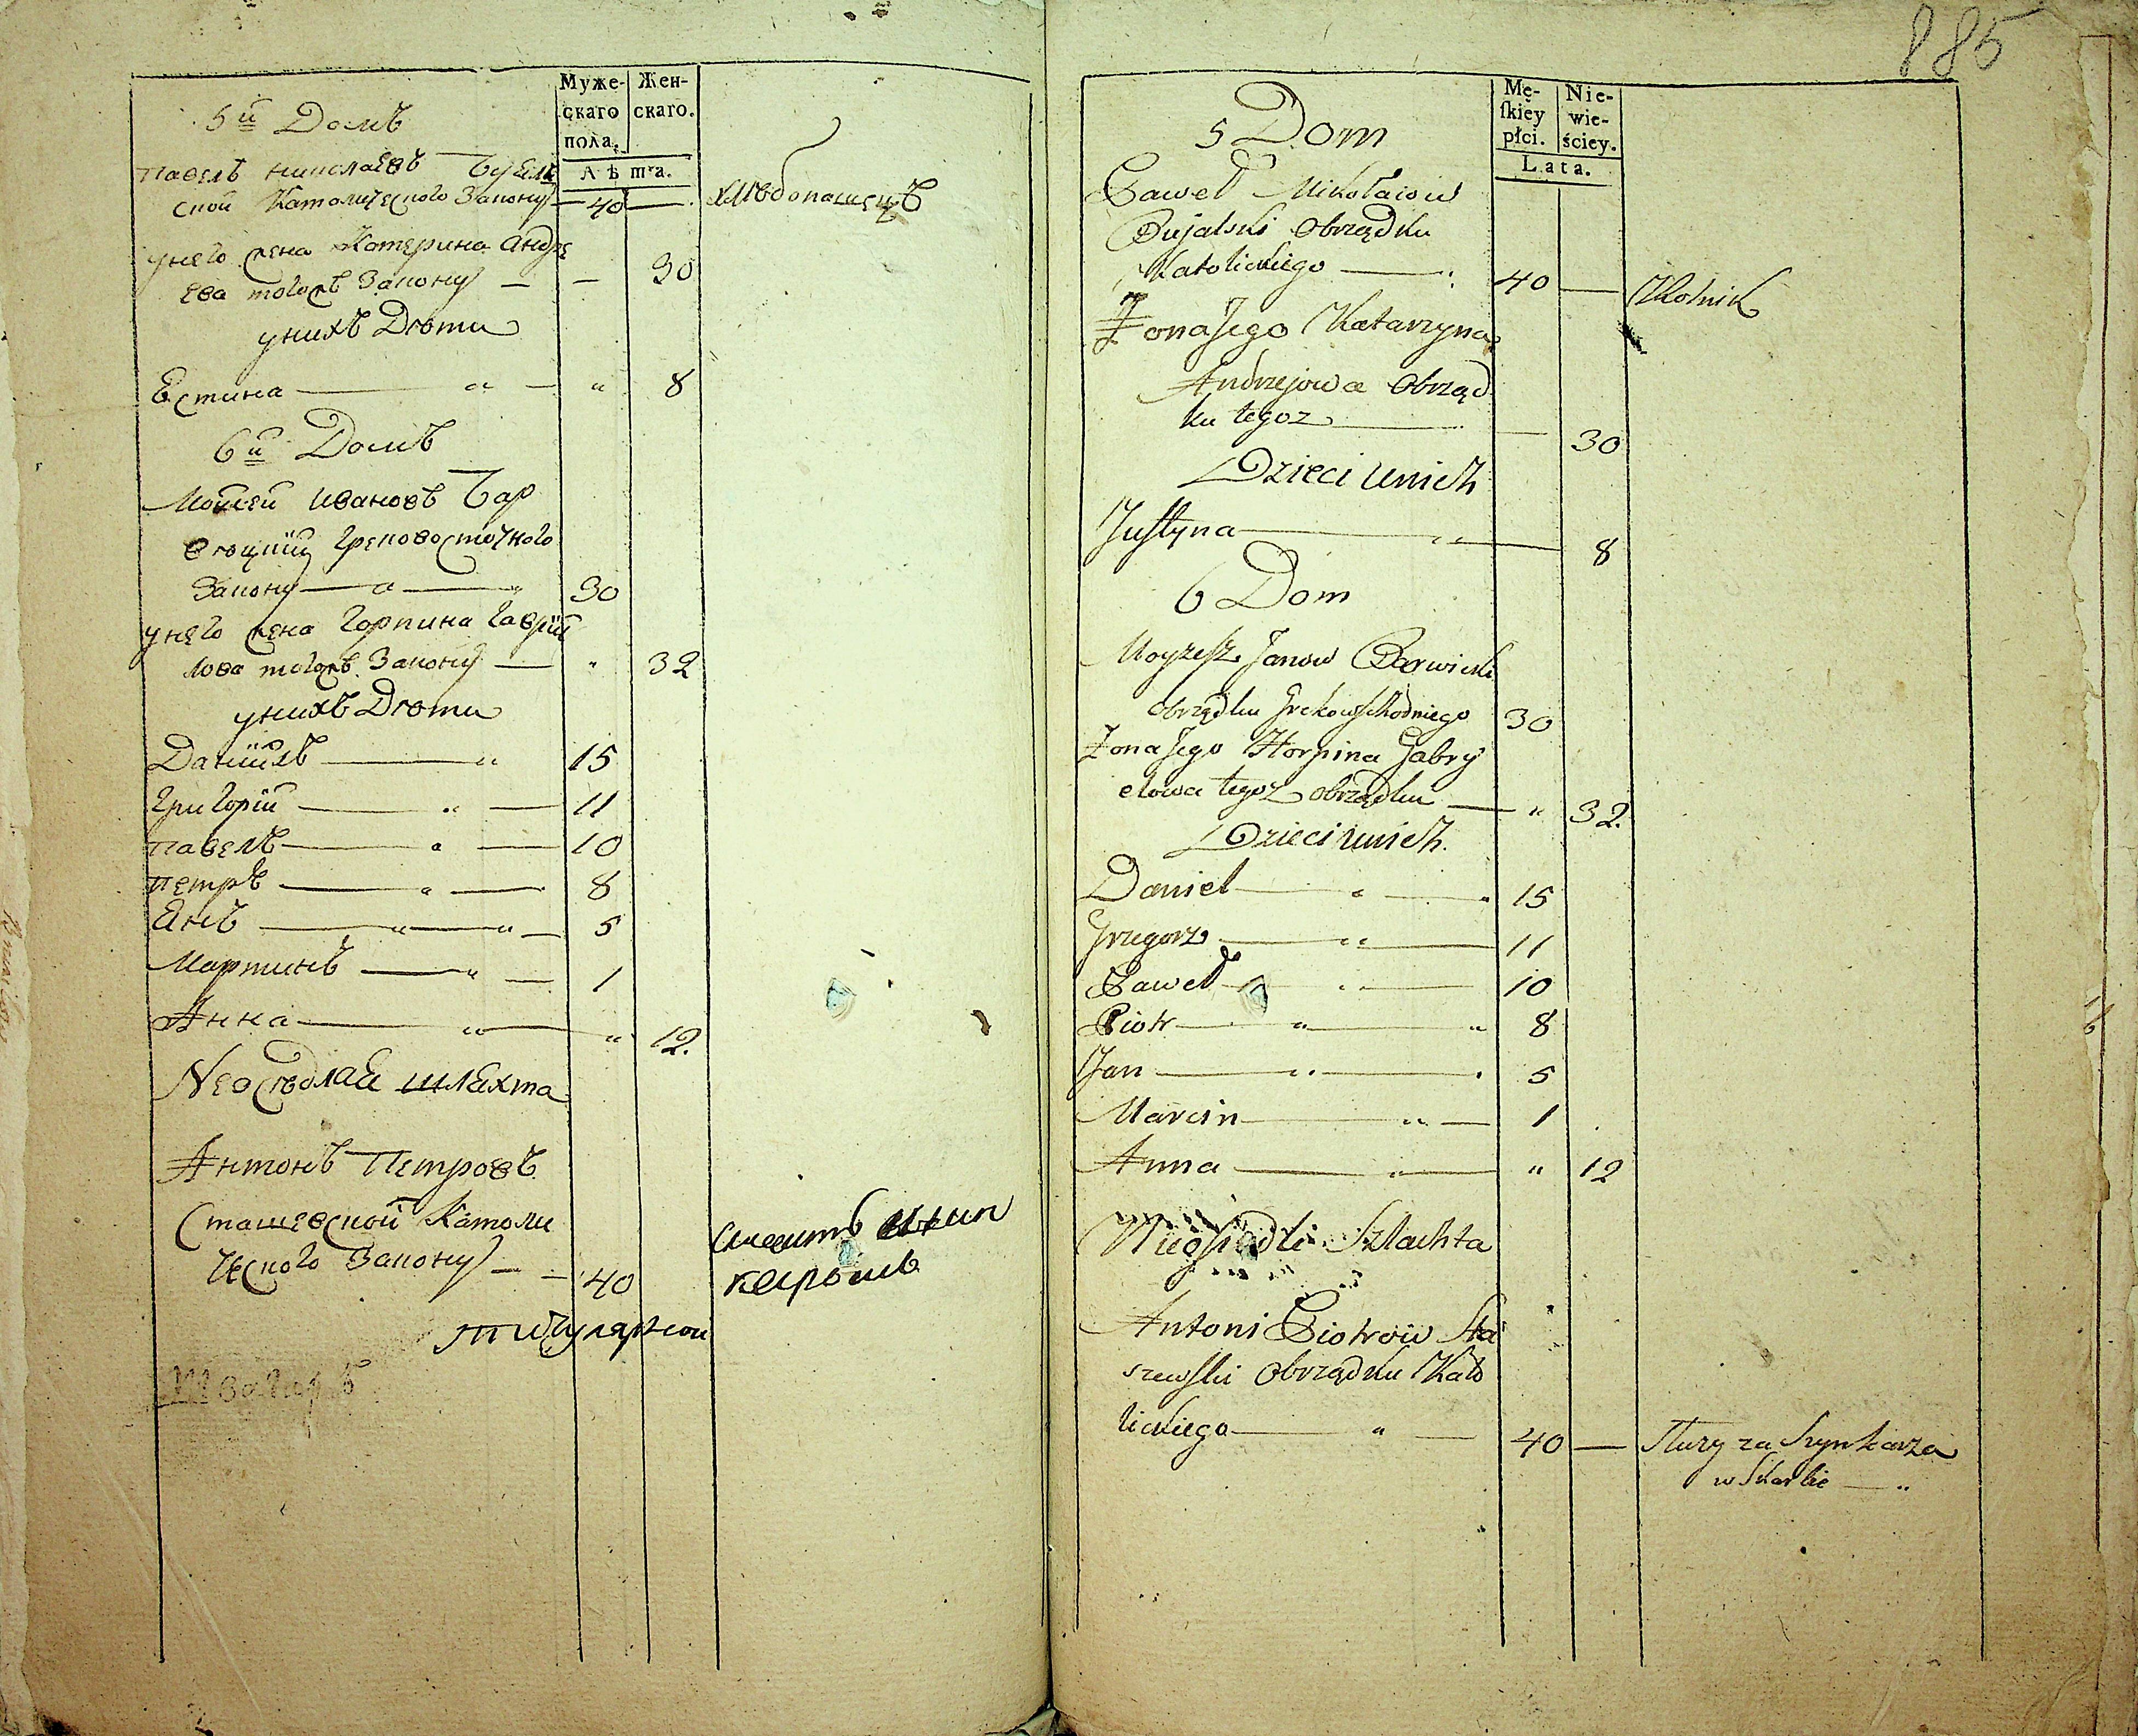 Муже-
скаго
пола.
Жен-
скаго.
Лѣта.
5й Домъ
Павелъ Николаевъ Буял
ской Католического Закону — 40 — хлебопашецъ
унего жена Катерина Андре
ева тогожъ Закону — — 30
унихъ Дѣти
Естина — „ — „ 8
6й Домъ
Мойсей Ивановъ Бар
вюцкий Грековосточного
Закону — „ — „ 30
унего жена Горпина Гаврий
лова тогожъ Закону — „ 32
унихъ Дѣти
Даниилъ — „ 15
Григорiй — „ — 11
Павелъ — „ — 10
Петръ — „ — 8
Янъ — „ — „ — 5
Мартинъ — „ — 1
Анна — „ — „ 12.
Неоседлая шляхта
Антонъ Петровъ
Сташевской Католи
ческого Закону — — 40
служитъ
885
Mę-
ſkiey
płci.
Nie-
wie-
ściey.
Lata.
5 Dom
Paweł Mikołaiow
Bujalski Obrządku
Katolickiego — 40 — Rolnik
Żona Jego Katarzyna
Andrzejowa Obrząd
ku tegoz — — 30
Dzieci unich
Justyna — „ — 8
6 Dom
Moyzesz Janow Barwicki
obrządku Grekowschodniego 30
Żona Jego Horpina Gabry
elowa tegoz obrządku — „ 32.
Dzieci unich.
Daniel — „ — „ 15
Grzegorz — „ — 11
Paweł — „ — 10
Piotr — „ — „ 8
Jan — „ — . 5
Marcin — „ — 1
Anna — „ — „ 12
Nieosiadli Szlachta
Antoni Piotrow Sta
szewski Obrządku Kato
lickiego — „ — 40 — Służy za Szynkarza
w Skarbie — „